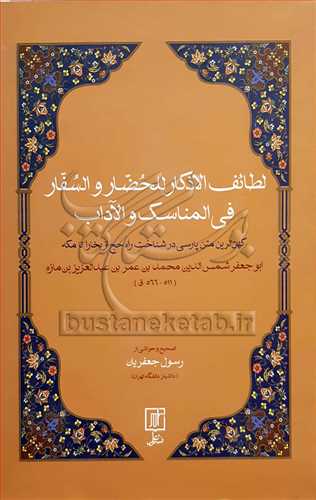 لطائف الأذکار للحُضّار و السُفّار
فی المناسک و الآداب
کهن‌ترین متن پارسی در شناخت راه حج از بخارا تا مکه
ابوجعفر شمس‌الدین محمد بن عمر بن عبدالعزیز بن مازه
(۵۱۱-۵۶۶ ق)
bustaneketab.com
تصحیح و حواشی از
رسول جعفریان
(دانشیار دانشگاه تهران)
نشر علم